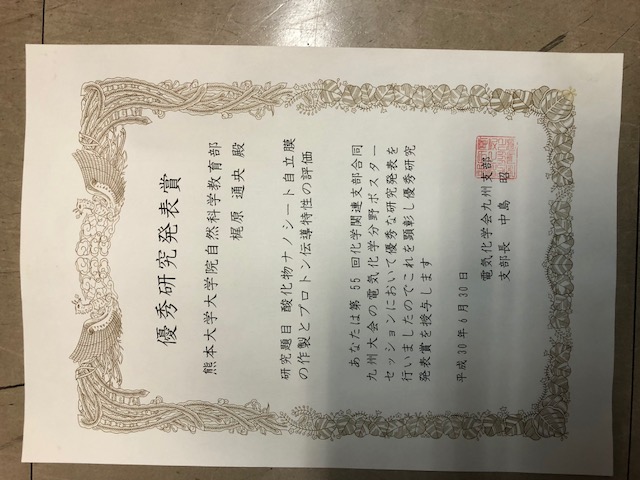 優秀研究発表賞
熊本大学大学院自然科学教育部
梶原 通央 殿
研究題目 酸化物ナノシート自立膜
の作製とプロトン伝導特性の評価
あなたは第 55 回化学関連支部合同
九州大会の電気化学分野ポスター
セッションにおいて優秀な研究発表を
行いましたのでこれを顕彰し優秀研究
発表賞を授与します
平成 30 年 6 月 30 日
電気化学会九州支部
支部長 中島 昭